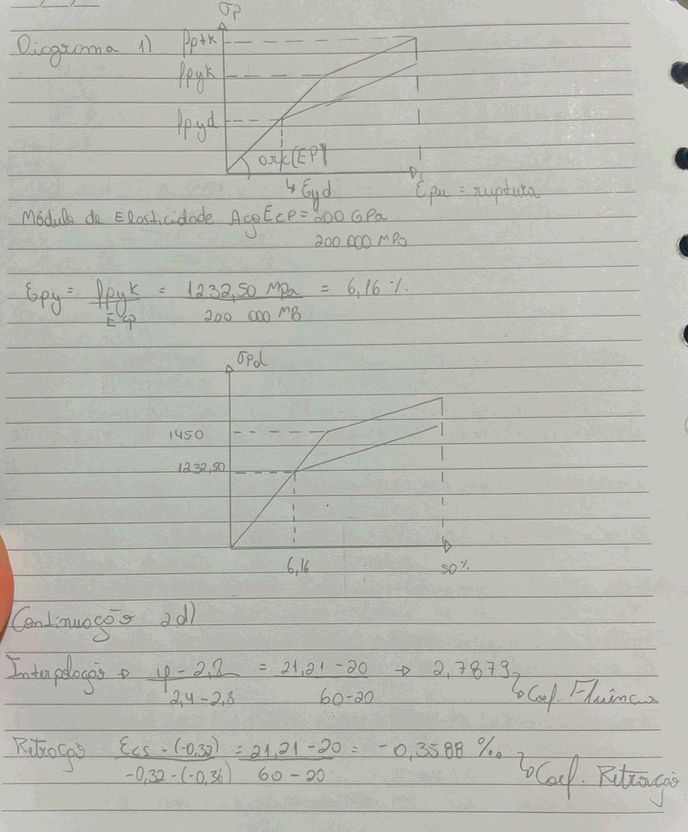 σp
Diagrama 1)
fptk
fpyk
fpyd
arc(EP)
↳ Eyd
Epu = ruptura
Módulo de Elasticidade Aço Ecp = 200 GPa
200 000 MPa
Epy = fpyk / Ecp = 1232,50 MPa / 200 000 MPa = 6,16 %.
σPd
1450
1232,50
6,16
50%.
Continuação 2d)
Interpolação → φ - 2,8 / 2,4 - 2,8 = 21,21 - 20 / 60 - 20 → 2,7879 ↳ Coef. Fluência
Retração Ecs - (-0,32) / -0,32 - (-0,36) = 21,21 - 20 / 60 - 20 = -0,3588 ‰ ↳ Coef. Retração